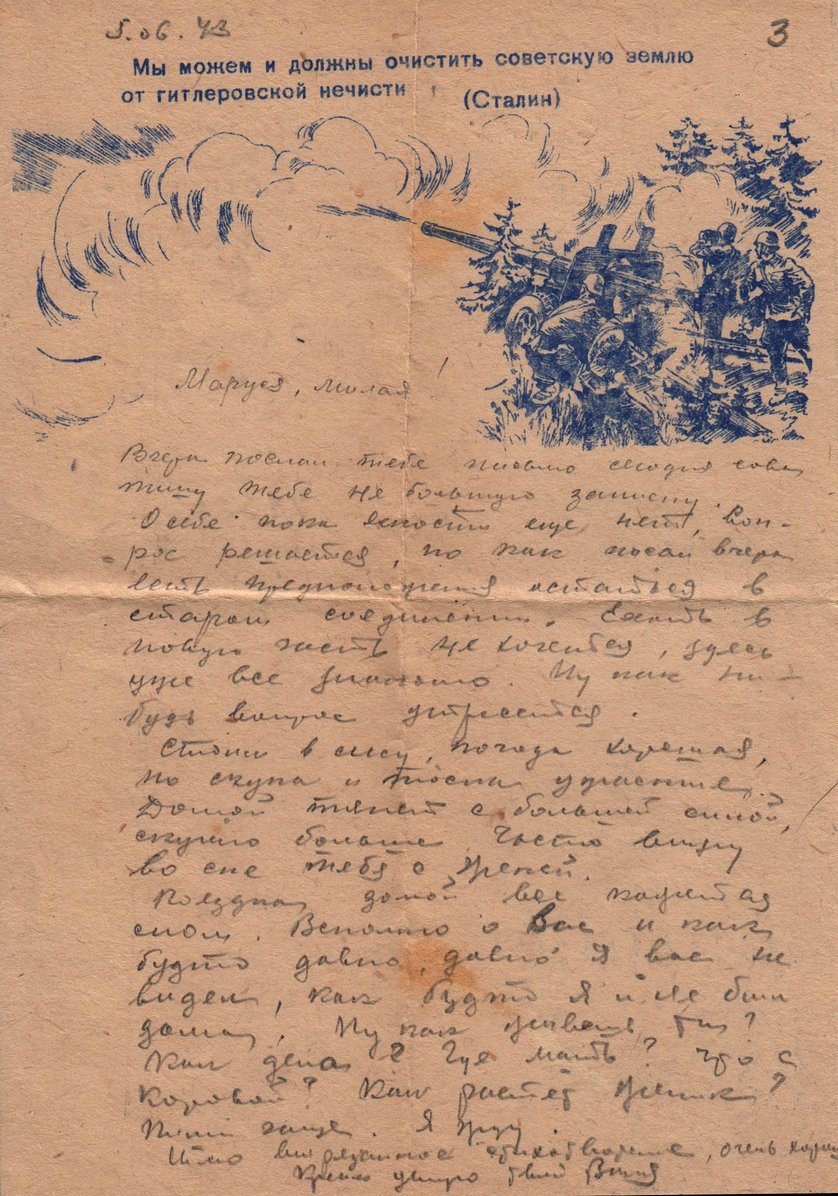 5.06.43
3
Мы можем и должны очистить советскую землю
от гитлеровской нечисти (Сталин)
Маруся, милая!
Вчера послал тебе письмо сегодня
пишу тебе не большую записку.
О себе пока ясности еще нет, Воп-
рос решается, но как писал вчера
есть предположения остаться в
старом соединении. Ехать в
новую часть не хочется, здесь
уже все знакомо. Ну как ни-
будь вопрос утрясется.
Стоим в лесу, погода хорошая,
но скука и тоска ужасные.
Домой тянет с большей силой,
скучаю больше. Часто вижу
во сне тебя с
Поездка домой все кажется
сном. Вспомню о Вас и как
будто давно, давно я вас не
видел, как будто я и не был
дома. Ну как живешь ты?
Как дела? Где мать? Что с
коровой? Как растет
Пиши чаще. Я жду.
стихотворение, очень
Крепко целую твой